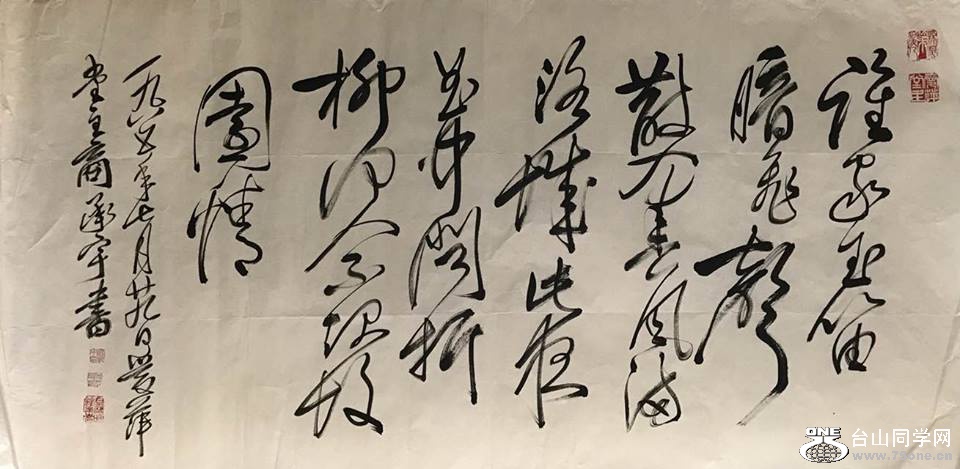 誰家玉笛
暗飛聲
散入春風滿
洛城此夜
曲中聞折
柳何人不起故
園情
一九八五年七月廿九日愛萍
堂主商承宇書
ONE
台山同学网
www.75one.cn